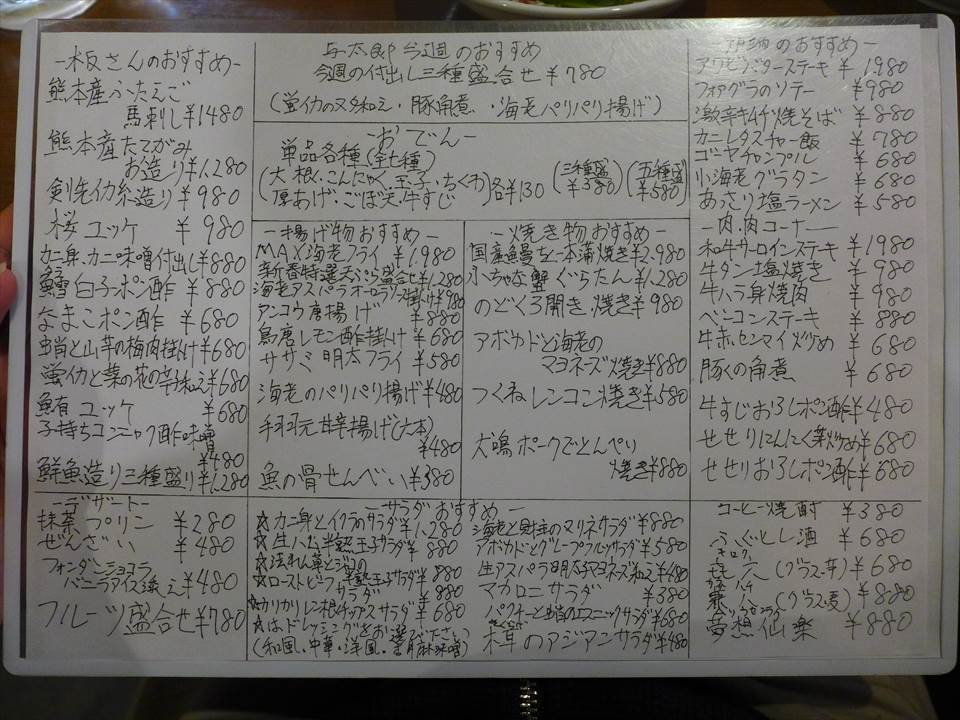 一板さんのおすすめ一
熊本産ふたえご
馬刺し¥1480
熊本産たてがみ
お造り¥1,280
剣先イカ糸造り ¥980
桜ユッケ ¥980
カニ身・カニ味噌付出し¥880
鱈白子ポン酢 ¥880
なまこポン酢 ¥680
蛸と山芋の梅肉掛け¥680
蛍イカと菜の花の辛子和え¥680
鮪ユッケ ¥680
子持ちコンニャク酢味噌
¥480
鮮魚造り三種盛り¥1,280
与太郎今週のおすすめ
今週の付出し三種盛合せ ¥780
(蛍イカのヌタ和え・豚角煮・海老パリパリ揚げ)
ーおでんー
単品各種(全七種)
(大根・こんにゃく・玉子・ちくわ
厚あげ・ごぼ天・牛すじ)各¥130
(三種盛 ¥380)
(五種盛 ¥580)
ー揚げ物おすすめー
MAX海老フライ ¥1,980
新春特選天ぷら盛合せ¥1,280
海老アスパラオーロラソース掛け¥780
アンコウ唐揚げ ¥880
鳥唐レモン酢掛け ¥680
ササミ明太フライ ¥580
海老のパリパリ揚げ¥480
手羽元甘辛揚げ(六本)
¥480
魚の骨せんべい ¥380
ー焼き物おすすめー
国産鰻を一本蒲焼き¥2,980
小ちゃな蟹ぐらたん ¥1,280
のどくろ開き焼き ¥980
アボカドと海老の
マヨネーズ焼き¥880
つくねレンコン焼き¥580
犬鳴ポークでとんぺい
焼き¥880
のおすすめー
アワビバターステーキ ¥1,980
フォアグラのソテー ¥980
激辛キムチ焼そば ¥880
カニレタスチャー飯 ¥780
ゴーヤチャンプル ¥680
小海老グラタン ¥680
あっさり塩ラーメン ¥580
ー肉・肉コーナーー
和牛サーロインステーキ ¥1980
牛タン塩焼き ¥980
牛ハラ身焼肉 ¥980
ベーコンステーキ ¥880
牛赤センマイ炒め ¥680
豚くの角煮 ¥680
牛すじおろしポン酢¥480
せせりにんにく芽炒め¥680
せせりおろしポン酢¥680
ーデザートー
抹茶プリン ¥280
ぜんざい ¥480
フォンダンショコラ
バニラアイス添え¥480
フルーツ盛合せ¥780
ーサラダおすすめー
☆カニ身とイクラのサラダ¥1,280
☆生ハム半熟玉子サラダ¥880
☆ほうれん草とジャコの
☆ローストビーフ半熟玉子サラダ¥880
サラダ ¥880
☆カリカリレン根チップスサラダ¥680
☆はドレッシングをお選びください
(和風・中華・洋風・青胡麻味噌)
海老と貝柱のマリネサラダ¥880
アボカドとグレープフルーツサラダ¥580
生アスパラ明太子マヨネーズ和え¥480
マカロニサラダ ¥380
パクチーと蛸のエスニックサラダ¥680
木耳のアジアンサラダ¥480
コーヒー焼酎 ¥380
ふぐひれ酒 ¥680
(グラス・芋) ¥680
(グラス・麦) ¥880
夢想仙楽 ¥880